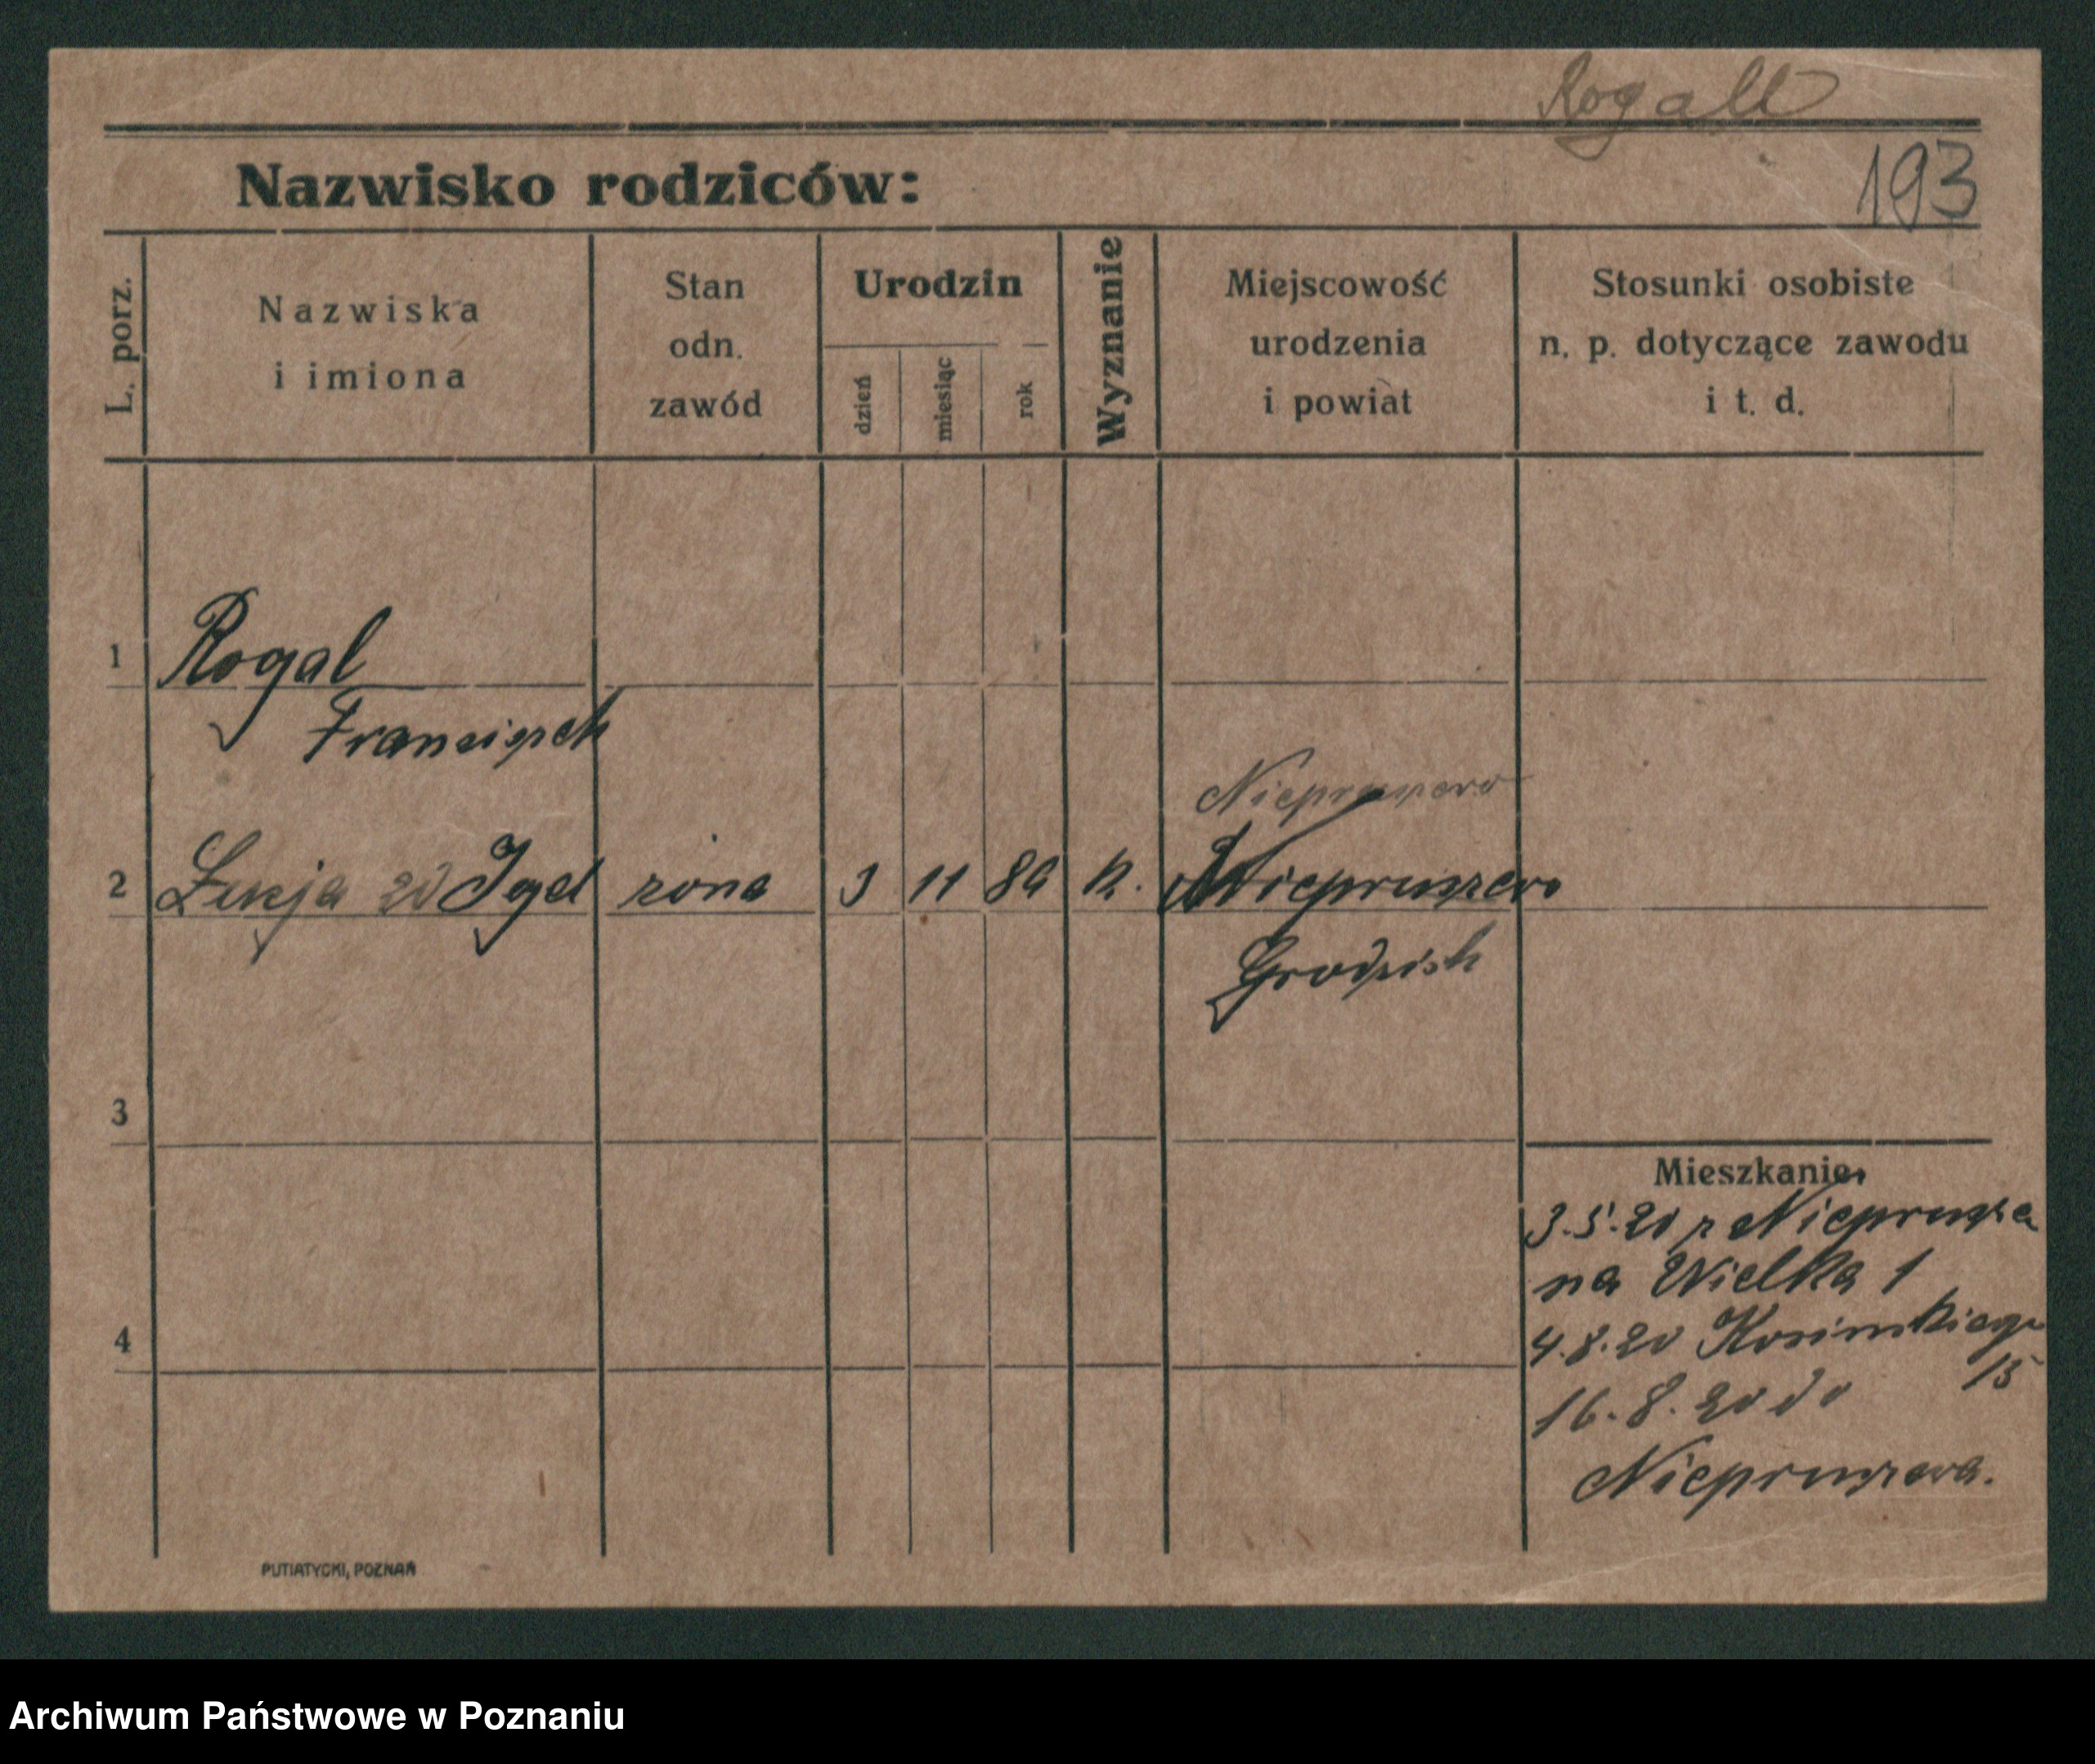 Rogall
Nazwisko rodziców:
193
L. porz.
Nazwiska
i imiona
Stan
odn.
zawód
Urodzin
dzień
miesiąc
rok
Wyznanie
Miejscowość
urodzenia
i powiat
Stosunki osobiste
n. p. dotyczące zawodu
i t. d.
1 Rogal
Franciszek
Niepruszewo
2 zd żona 3 11 89 k. Niepruszewo
Grodzisk
3
Mieszkanie
3.5.20 z Nieprusze
na Wielka 1
4
4.8.20
15
16.8.20 do
Niepruszewa.
PUTIATYCKI, POZNAŃ
Archiwum Państwowe w Poznaniu